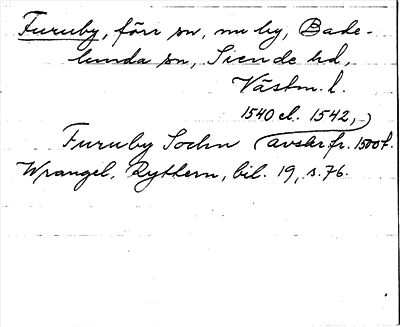 Furuby, förr sn, nu by, Bade-
lunda sn, Siende hd,
Västm. l.
1540 el. 1542,
Furuby Sochn (avskr. fr. 1500t.)
Wrangel, Ryttern, bil. 19, s. 76.